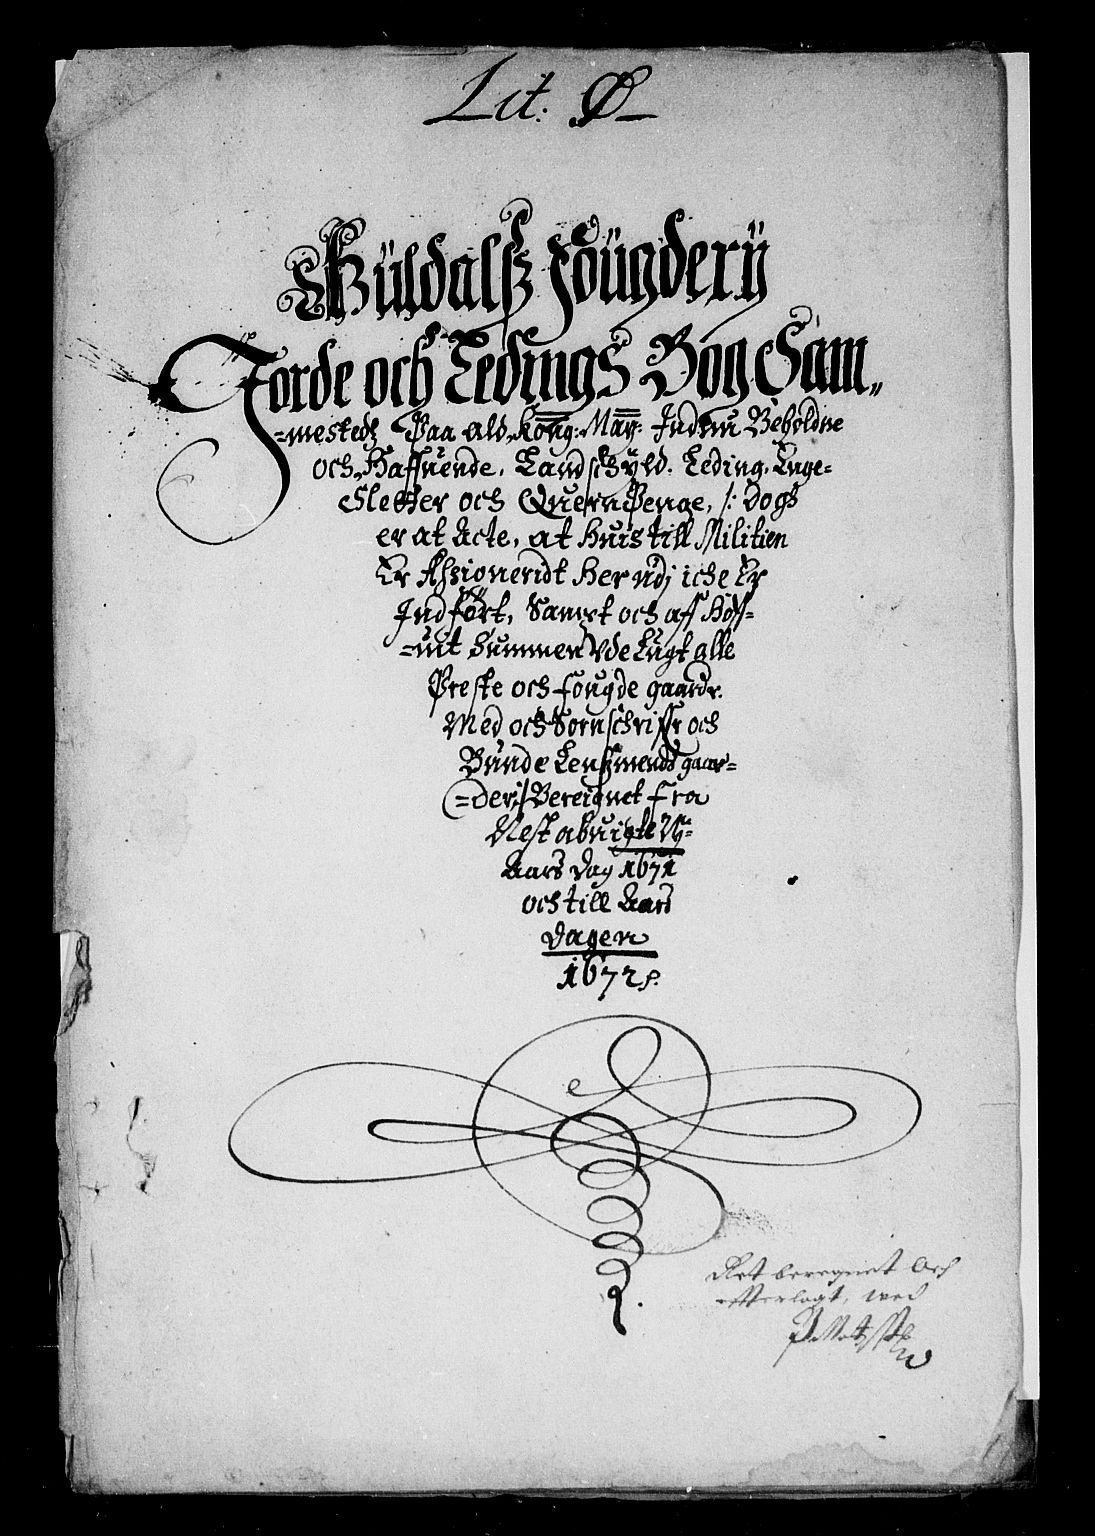 Lit: Ø
Guldals Fougderÿ
Jorde och Leding̃s Bog Sam„
=mesteds Paa ald Kong: May: Inden Beholdne
och Haffuende, Landschÿld. Leding. Enge=
Sletter och Quern Penge, /: Dogs
er at Acte, at Huis till Militien
Er Assioneridt Her udj iche Er
Indført, Sampt och aff Hoff=
=uit Summen Vdelugt alle
Preste och Fougde gaardr.
Med och Sornschriffr och
Bunde Lensmends gaar=
=der:/ Bereignet Fra
Nestabuigte Ny=
Aars Dag 1671
och till Aars
Dagen
1672
Ret beregnet Och
efterlagt, med